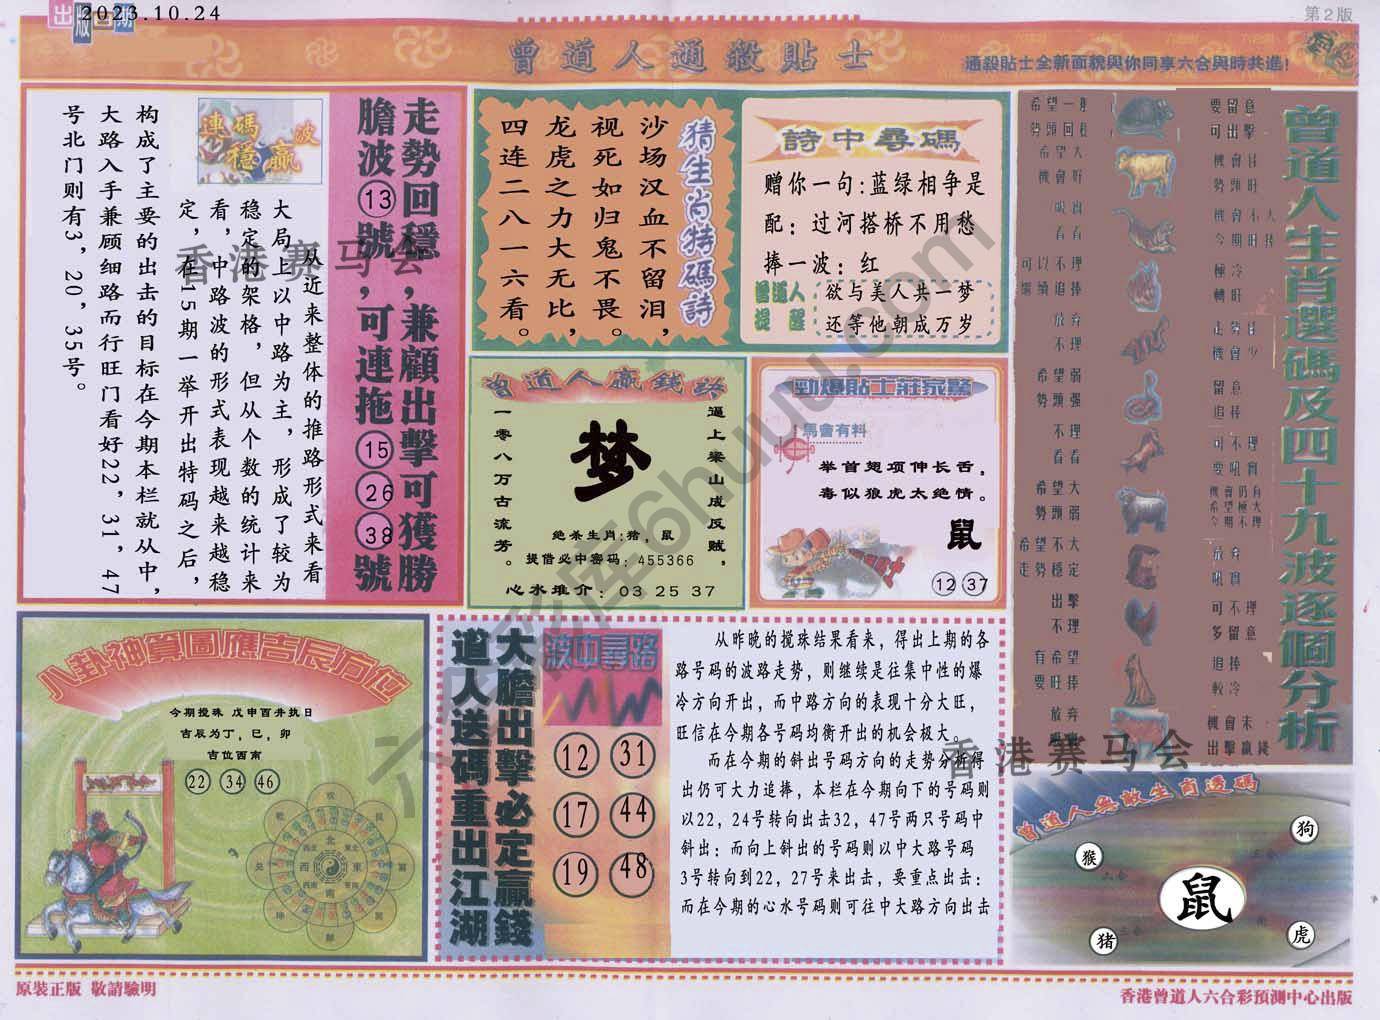 出版日期
2023.10.24
第2版
曾道人通殺貼士
通殺貼士全新面貌與你同享六合與時共進!
走勢回穩,兼顧出擊可獲勝
膽波⑬號,可連拖⑮㉖㊳號
連碼穩贏波
从近来整体的推路形式来看
大局上以中路为主,形成了较为
稳定的架格,但从个数的统计来
看,中路波的形式表现越来越稳
定,在15期一举开出特码之后,
构成了主要的出击的目标在今期本栏就从中,
大路入手兼顾细路而行旺门看好22,31,47
号北门则有3,20,35号。
猜生肖特碼詩
沙场汉血不留泪,
视死如归鬼不畏。
龙虎之力大无比,
四连二八一六看。
詩中尋碼
赠你一句:蓝绿相争是
配:过河搭桥不用愁
捧一波:红
曾道人
提醒
欲与美人共一梦
还等他朝成万岁
曾道人贏錢詩
逼上梁山成反贼,
梦
一零八万古流芳。
绝杀生肖:猪,鼠
提借必中密码:455366
心水堆介:03 25 37
勁爆貼士莊家驚
馬會有料
举首翅项伸长舌,
毒似狼虎太绝情。
鼠
12 37
曾道人生肖選碼及四十九波逐個分析
要留意
可出擊
希望大
機會好
勢頭旺
可以不理
極冷
轉旺
放弃
不理
希望弱
勢頭强
留意
追捧
不理
看看
可不理
希望大
勢頭弱
希望不大
走勢穩定
出擊
不理
可不理
多留意
有希望
要旺捧
追捧
較冷
放弃
八卦神算圖應吉辰方位
今期搅珠 戊申酉奔执日
吉辰为丁,巳,卯
吉位西南
22 34 46
北
西
東
南
西北
東北
西南
大膽出擊必定贏錢
道人送碼重出江湖
波中尋路
12 31
17 44
19 48
从昨晚的搅珠结果看来,得出上期的各
路号码的波路走势,则继续是往集中性的爆
冷方向开出,而中路方向的表现十分大旺,
旺信在今期各号码均衡开出的机会极大。
而在今期的斜出号码方向的走势分析得
出仍可大力追捧,本栏在今期向下的号码则
以22,24号转向出击32,47号两只号码中
斜出:而向上斜出的号码则以中大路号码
3号转向到22,27号来出击,要重点出击:
而在今期的心水号码则可往中大路方向出击
曾道人無敵生肖透碼
狗
猴
鼠
猪
虎
香港赛马会
香港赛马会
六合彩库6huuu.com
原裝正版 敬請驗明
香港曾道人六合彩預測中心出版